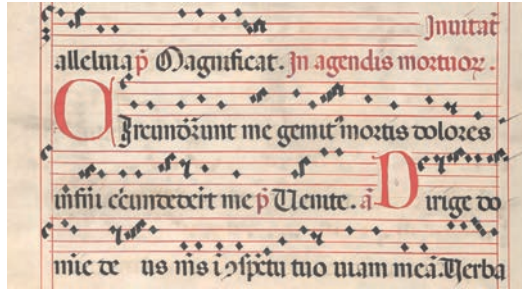 Inuitat
alleluia p̄ Magnificat. In agendis mortuoꝝ.
Circundoꝝunt me gemitꝰ mortis dolores
infini ccundedert me p̄ Uenite. a Dirige do
mie de us ms i ↄspectu tuo uiam meā. Uerba